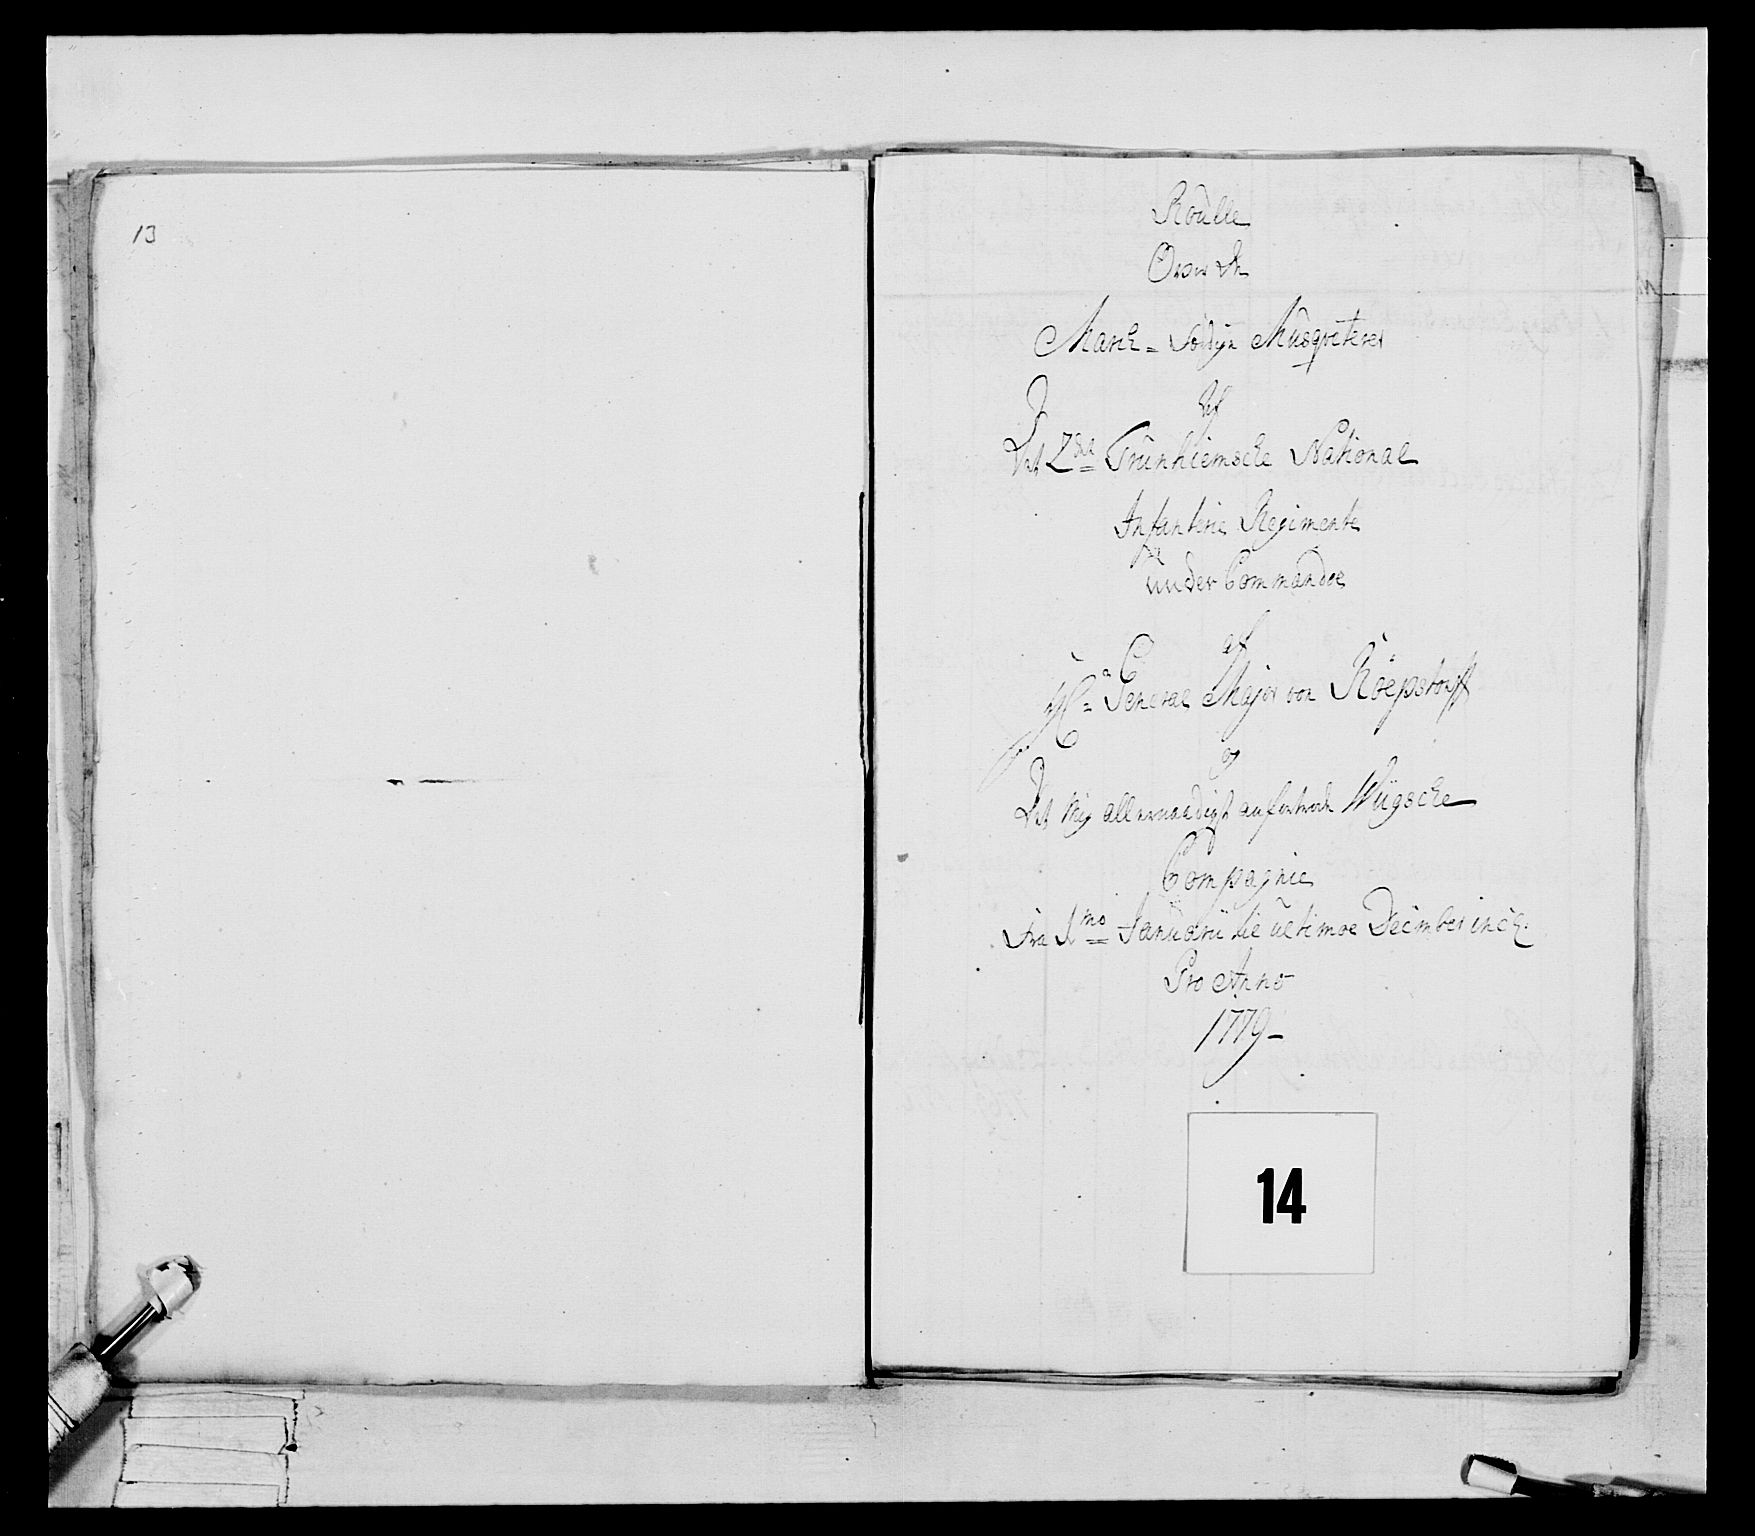 13
Roulle
Over de
March-færdige Musqveterer
Af
Det 2det Trunhiemsche National
Infanterie Regimente
under Commandoe
af
Hr General Major von Röepstorff
og
Det Mig allernaadigst anfortroede Wiigsche
Compagnie
Fra 1mo Januarii til ultimoe December incl.
Pro Anno
1779-
14